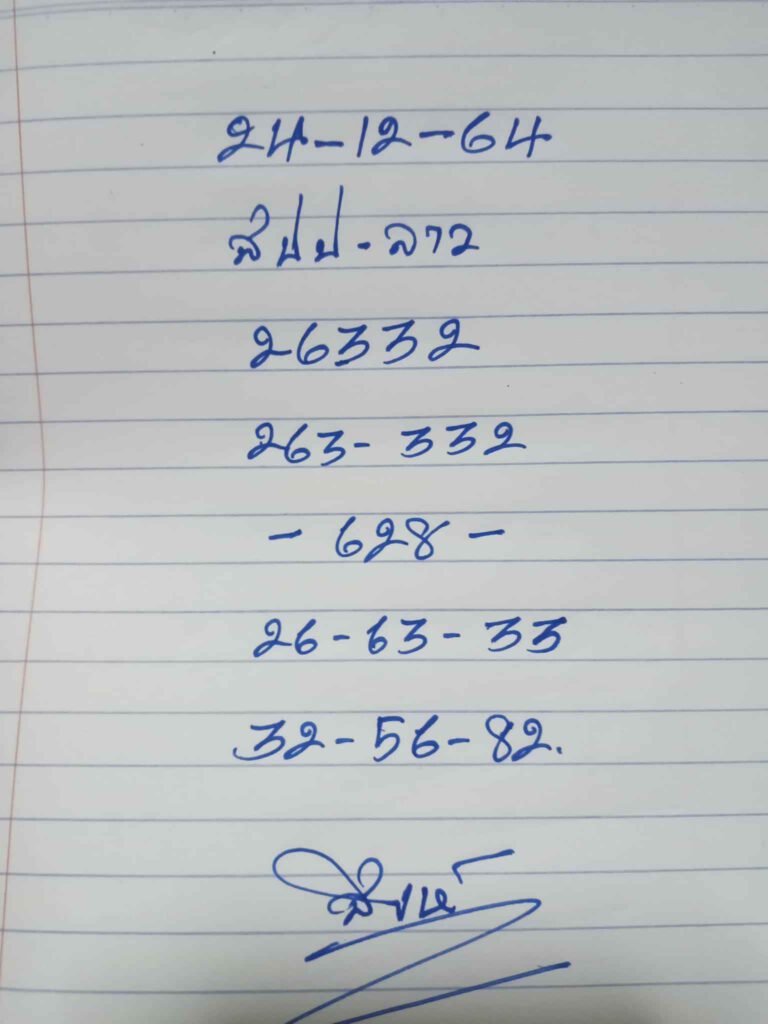 24-12-64
สปป-ลาว
26332
263-332
-628-
26-63-33
32-56-82.